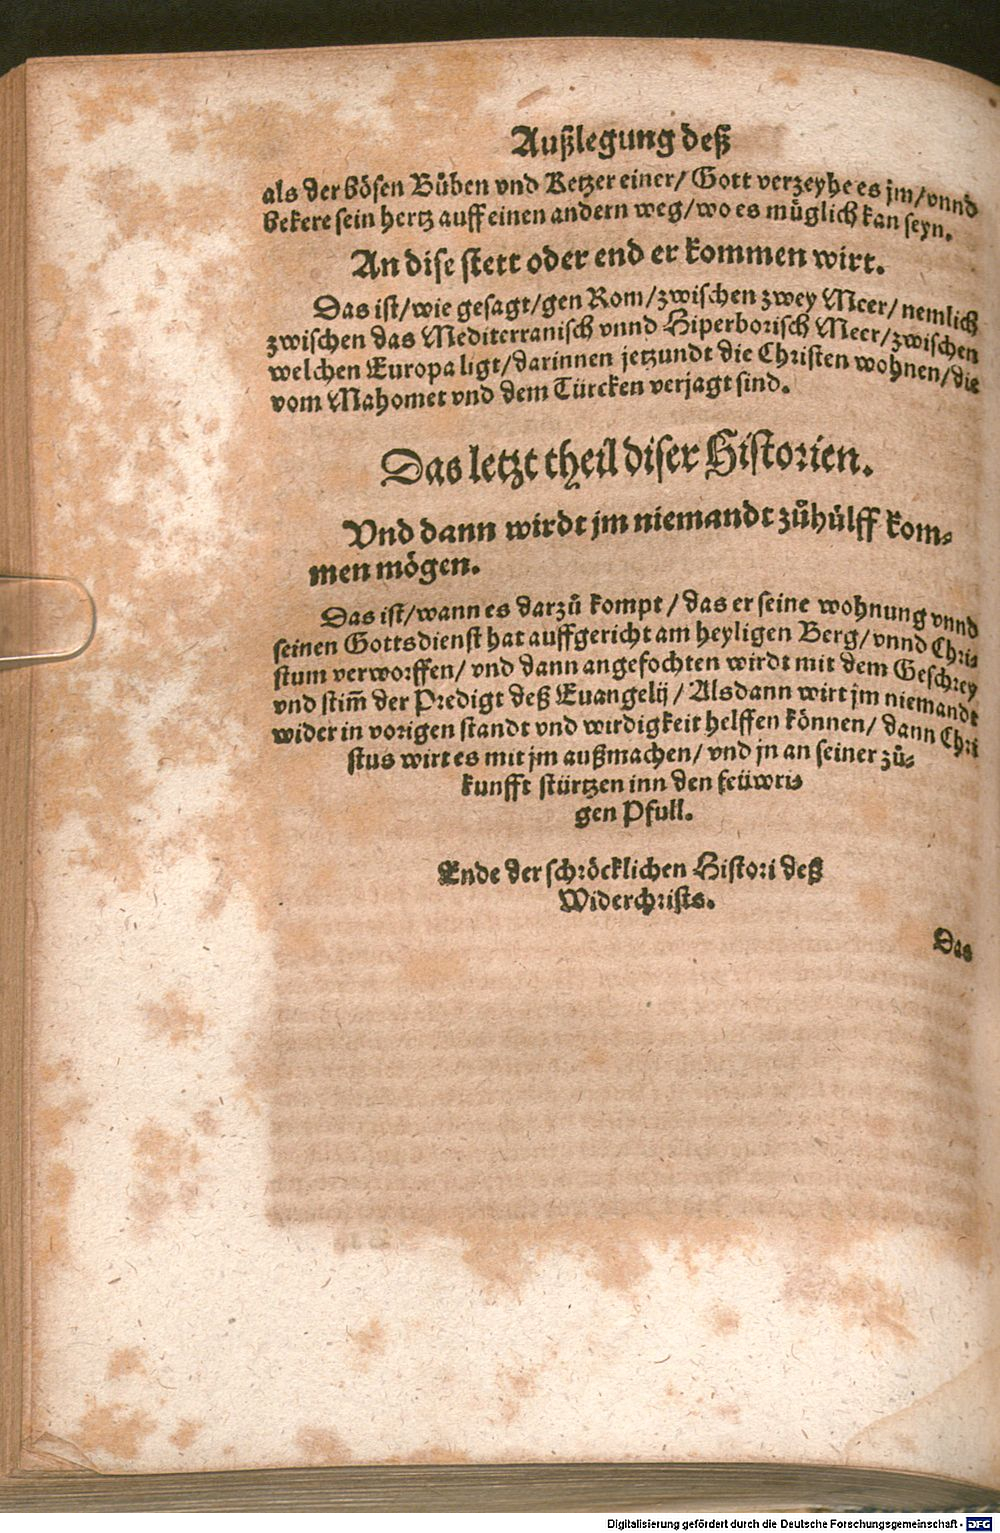 Außlegung deß
als der bösen Bůben vnd Ketzer einer/ Gott verzeyhe es jm/ vnnd
bekere sein hertz auff einen andern weg/ wo es müglich kan seyn.
An dise stett oder end er kommen wirt.
Das ist/ wie gesagt/ gen Rom/ zwischen zwey Meer/ nemlich
zwischen das Mediterranisch vnnd Hiperborisch Meer/ zwischen
welchen Europa ligt/ darinnen jetzundt die Christen wohnen/ die
vom Mahomet vnd dem Türcken verjagt sind.
Das letzt theil diser Historien.
Vnd dann wirdt jm niemandt zůhülff kom-
men mögen.
Das ist/ wann es darzů kompt/ das er seine wohnung vnnd
seinen Gottsdienst hat auffgericht am heyligen Berg/ vnnd Chri-
stum verworffen/ vnd dann angefochten wirdt mit dem Geschrey
vnd stim̃ der Predigt deß Euangelij/ Alsdann wirt jm niemandt
wider in vorigen standt vnd wirdigkeit helffen können/ dann Chri
stus wirt es mit jm außmachen/ vnd jn an seiner zů-
kunfft stürtzen inn den feüwri-
gen Pfull.
Ende der schröcklichen Histori deß
Widerchrists.
Das
Digitalisierung gefördert durch die Deutsche Forschungsgemeinschaft - DFG